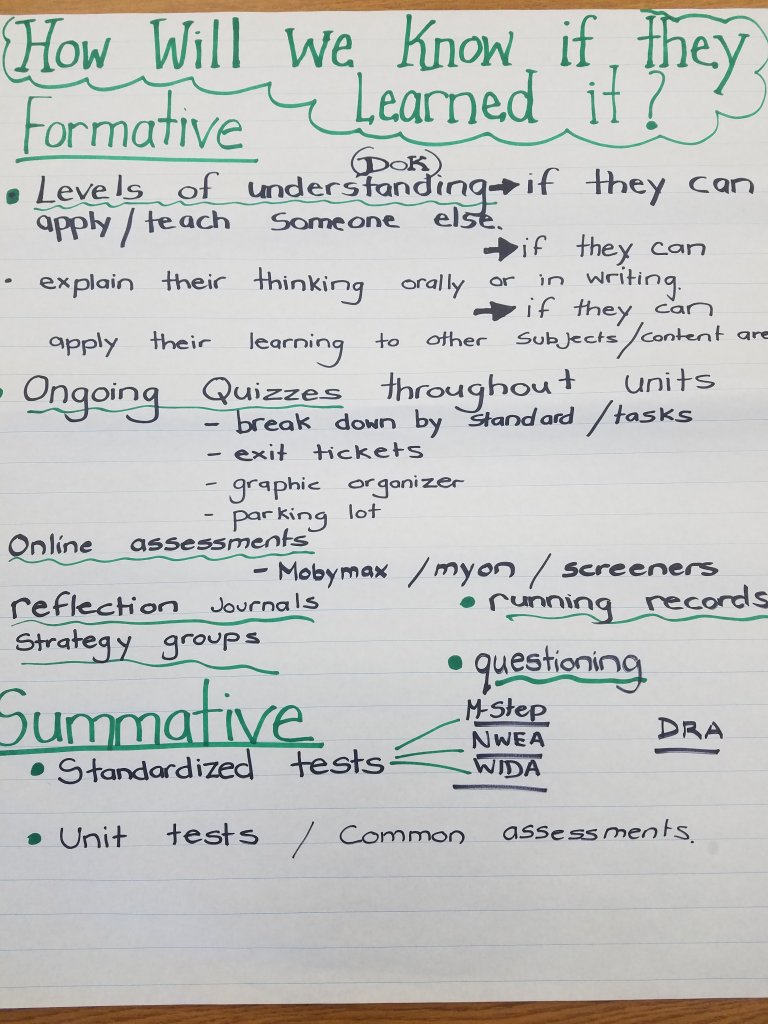 How Will We Know if they
Learned it?
Formative
(DOK)
• Levels of understanding → if they can
apply / teach someone else.
→ if they can
· explain their thinking orally or in writing.
→ if they can
apply their learning to other subjects/content are
• Ongoing Quizzes throughout units
- break down by standard / tasks
- exit tickets
- graphic organizer
- parking lot
Online assessments
- Mobymax / myon / screeners
reflection Journals
• running records
Strategy groups
• questioning
Summative
• Standardized tests
M-Step
NWEA
WIDA
DRA
• Unit tests / Common assessments.